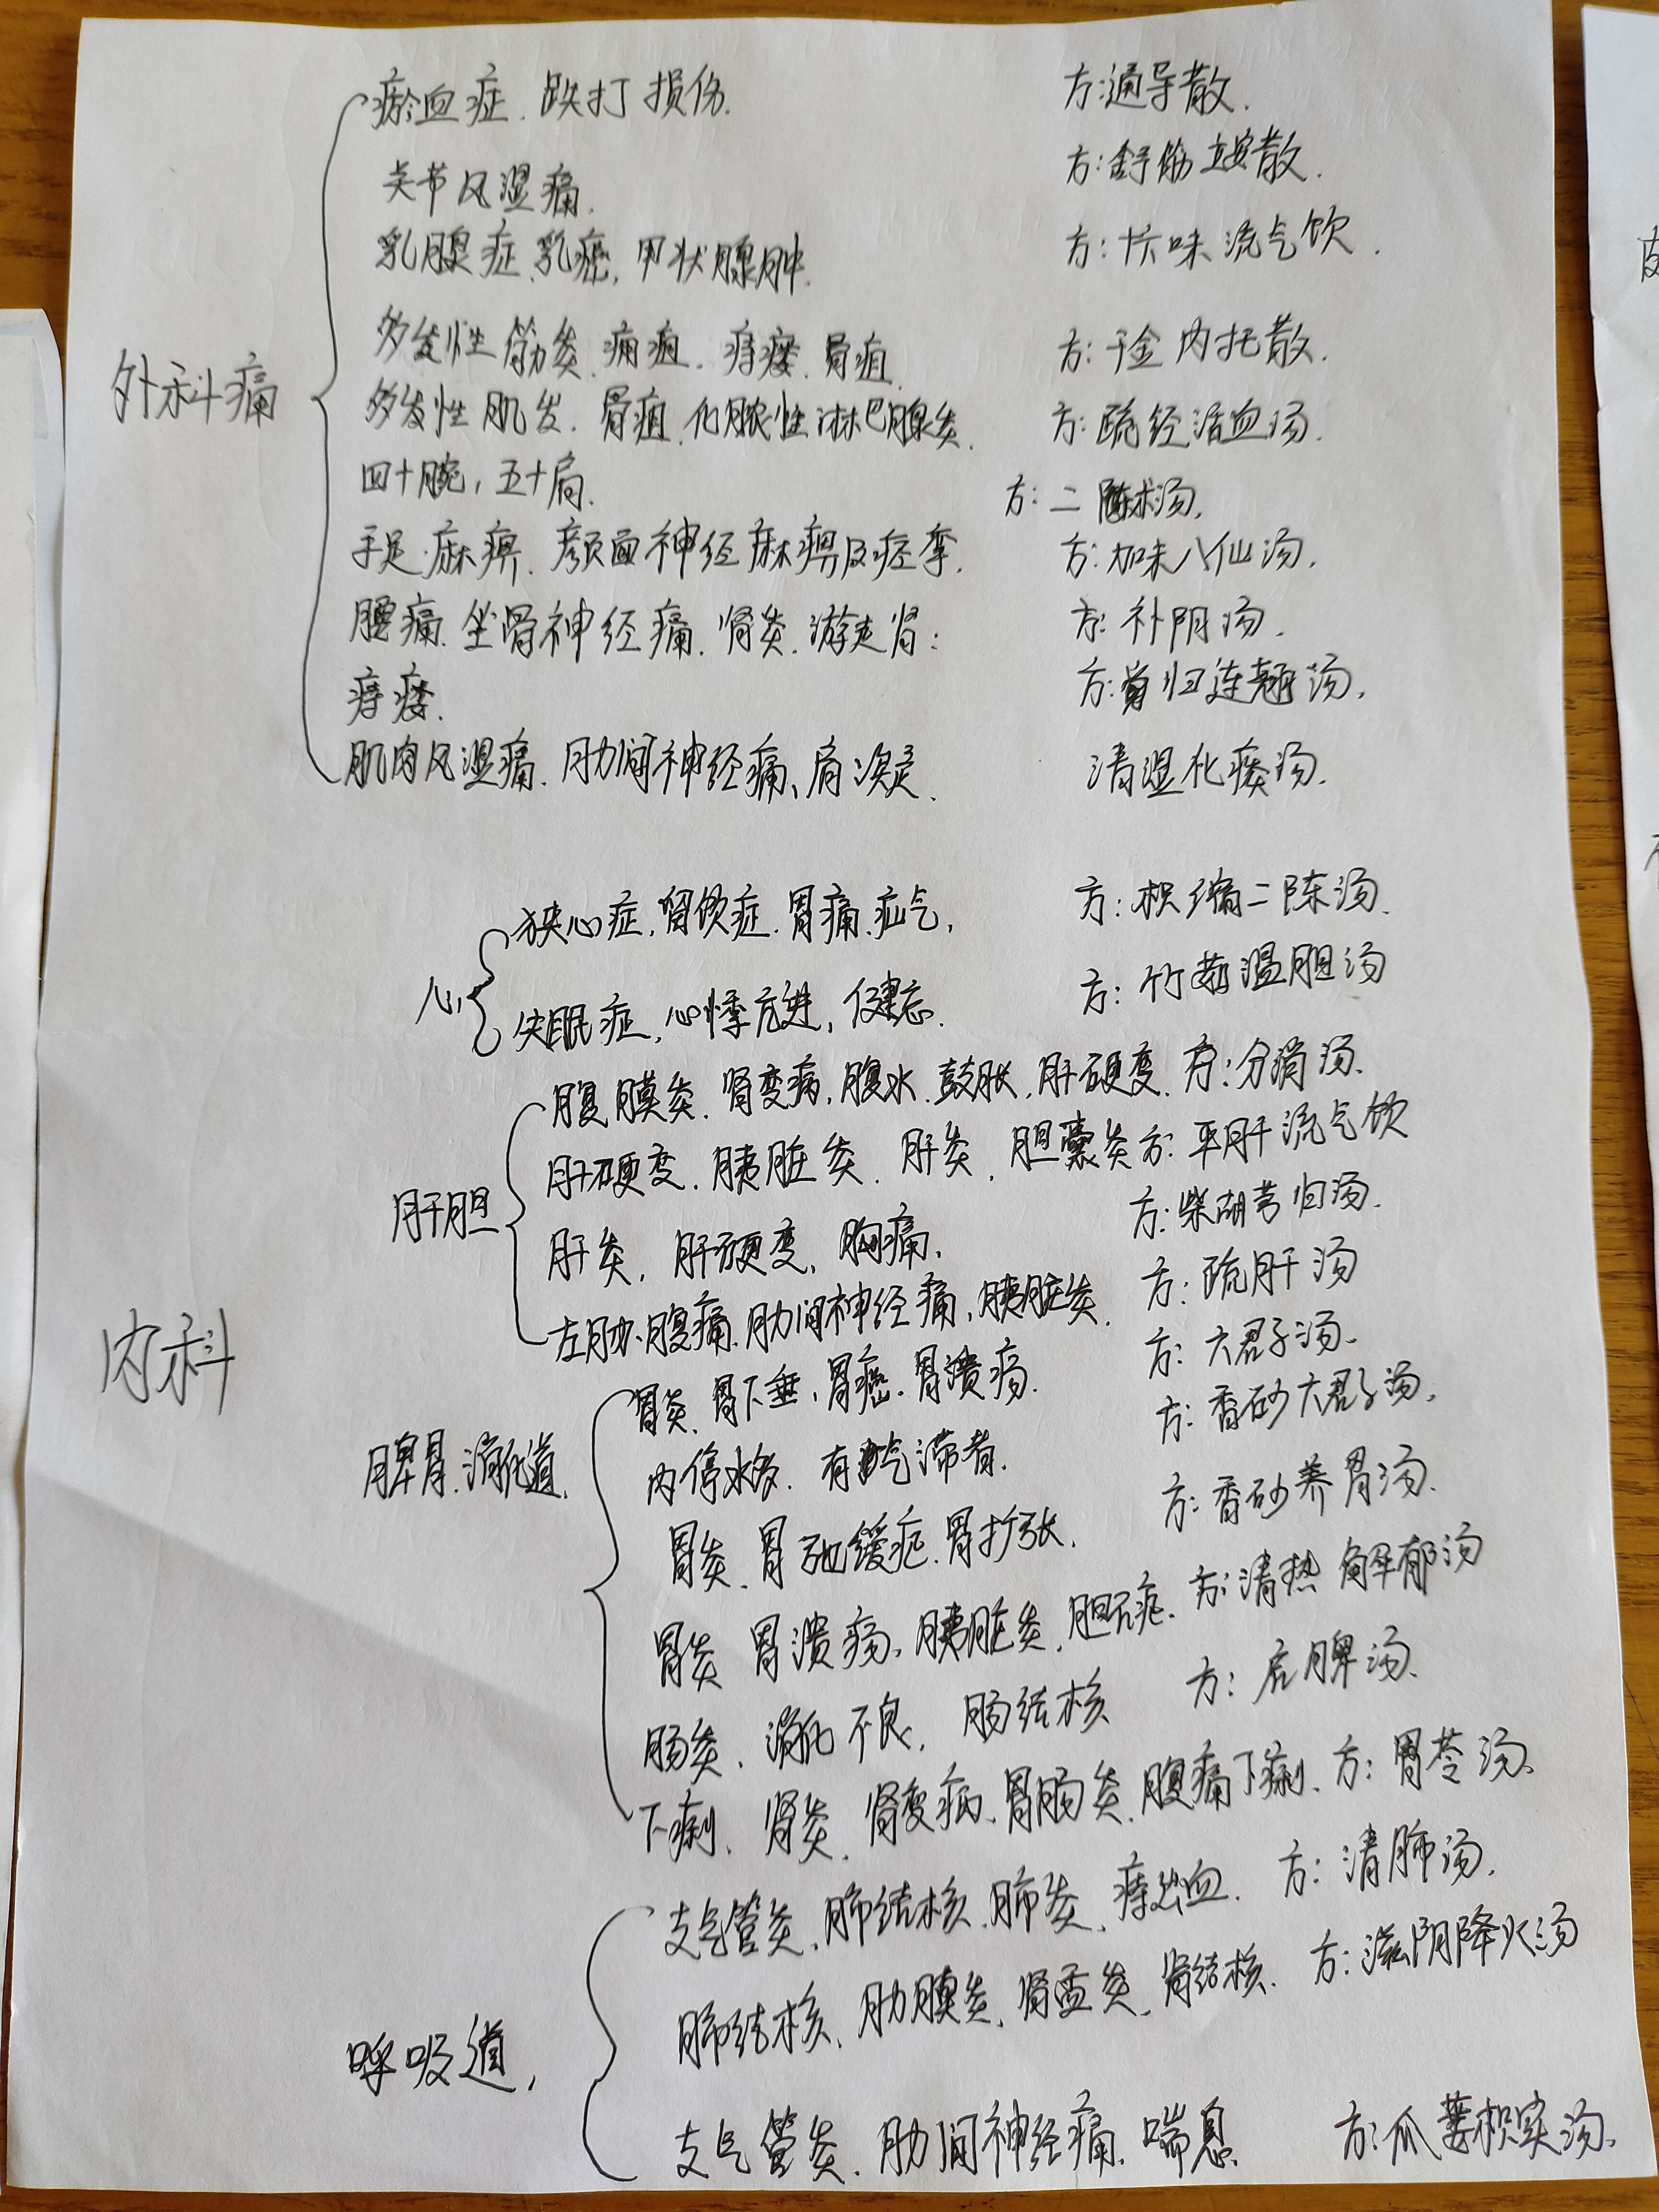 瘀血症.跌打损伤. 方:通导散.
关节风湿痛. 方:舒筋立安散.
乳腺症、乳癌,甲状腺肿. 方:十六味流气饮.
多发性筋炎.痈疽.痔瘘.骨疽. 方:千金内托散.
外科痛
多发性肌炎.骨疽.化脓性淋巴腺炎. 方:疏经活血汤.
四十腕,五十肩. 方:二陈术汤.
手足麻痹.颜面神经麻痹及痉挛. 方:加味八仙汤.
腰痛.坐骨神经痛.肾炎.游走肾: 方:补阴汤.
痔瘘. 方:当归连翘汤.
肌肉风湿痛.肋间神经痛、肩凝. 清湿化痰汤.
心
狭心症,留饮症.胃痛.疝气, 方:枳缩二陈汤.
失眠症,心悸亢进,健忘. 方:竹茹温胆汤
腹膜炎.肾变病,腹水.鼓胀,肝硬变. 方:分消汤.
肝硬变.胰脏炎.肝炎,胆囊炎 方:平肝流气饮
肝胆
肝炎,肝硬变,胸痛, 方:柴胡芎归汤.
左胁腹痛.肋间神经痛,胰脏炎. 方:疏肝汤
内科
胃炎.胃下垂,胃癌.胃溃疡. 方:六君子汤.
脾胃.消化道.
内停水多.有气滞者. 方:香砂六君子汤.
胃炎.胃弛缓症.胃扩张. 方:香砂养胃汤.
胃炎 胃溃疡,胰脏炎,胆石症. 方:清热解郁汤
肠炎.消化不良,肠结核 方:启脾汤.
下痢.肾炎.肾变病、胃肠炎.腹痛下痢. 方:胃苓汤.
支气管炎,肺结核.肺炎,痔出血. 方:清肺汤.
肺结核,肋膜炎,肾盂炎,肾结核. 方:滋阴降火汤
呼吸道,
支气管炎.肋间神经痛.喘息. 方:瓜蒌枳实汤.